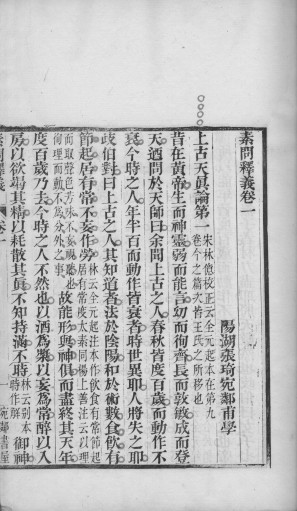 素問釋義卷一
陽湖張琦宛鄰甫學
上古天眞論第一宋林億校正云全元起本在第九卷今之篇次皆王氏之所移也
昔在黃帝生而神靈弱而能言幼而徇齊長而敦敏成而登
天迺問於天師曰余聞上古之人春秋皆度百歲而動作不
衰今時之人年半百而動作皆衰者時世異耶人將失之耶
歧伯對曰上古之人其知道者法於陰陽和於術數食飲有
節起居有常不妄作勞林云全元起注本作飲食有常節起居有常度太素同楊上善注云以理而取聲色芳味不妄視聽也循理而動不爲分外之事故能形與神俱而盡終其天年
度百歲乃去今時之人不然也以酒爲漿以妄爲常醉以入
房以欲竭其精以耗散其眞不知持滿不時林云別本時作解御神
素問釋義
卷一
一
宛鄰書屋